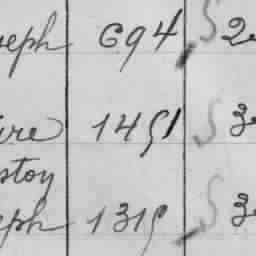 seph 694 S 2
ire 1451 S 3
stoy
eph 1315 S 3